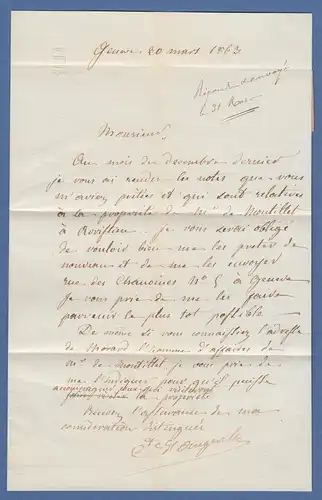 Geneve 30 mars 1863
Répondu et envoyé
l. 31 Mars
Monsieur,
Au mois de decembre dernier
je vous ai rendu les notes que vous
m'aviez prêtées et qui sont relatives
à la propriété de Mr de Montillet
à je vous serai obligé
de vouloir bien me les preter de
nouveau et de me les envoyer
rue des Chanoines No 5 à Geneve
je vous prie de me les faire
parvenir le plus tot possible.
De même si vous connaissiez l'adresse
de Morard l'homme d'affaires de
Mr de Montillet je vous prie de
me l'indiquer pour qu'il puisse
la propriété
Recevez l'assurance de ma
consideration distinguée